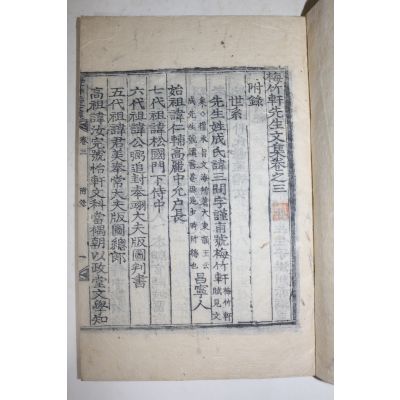 梅竹軒先生文集卷之三
附錄
世系
先生姓成氏諱三問字謹甫號梅竹軒
昌寧人
始祖諱仁輔高麗中允戶長
七代祖諱松國門下侍中
六代祖諱公弼追封奉翊大夫版圖判書
五代祖諱君美奉常大夫版圖總郞
高祖諱汝完號怡軒文科當僞朝以政堂文學知
卷三
附錄
一